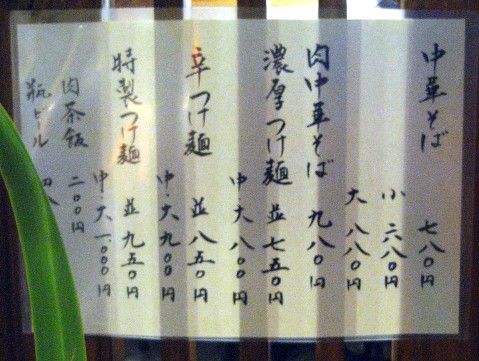 中華そば 七八〇円
小 六八〇円
大 八八〇円
肉中華そば 九八〇円
濃厚つけ麺 並 七五〇円
中・大 八〇〇円
辛つけ麺 並 八五〇円
中・大 九〇〇円
特製つけ麺 並 九五〇円
中・大 一〇〇〇円
肉茶飯 二〇〇円
瓶ビール